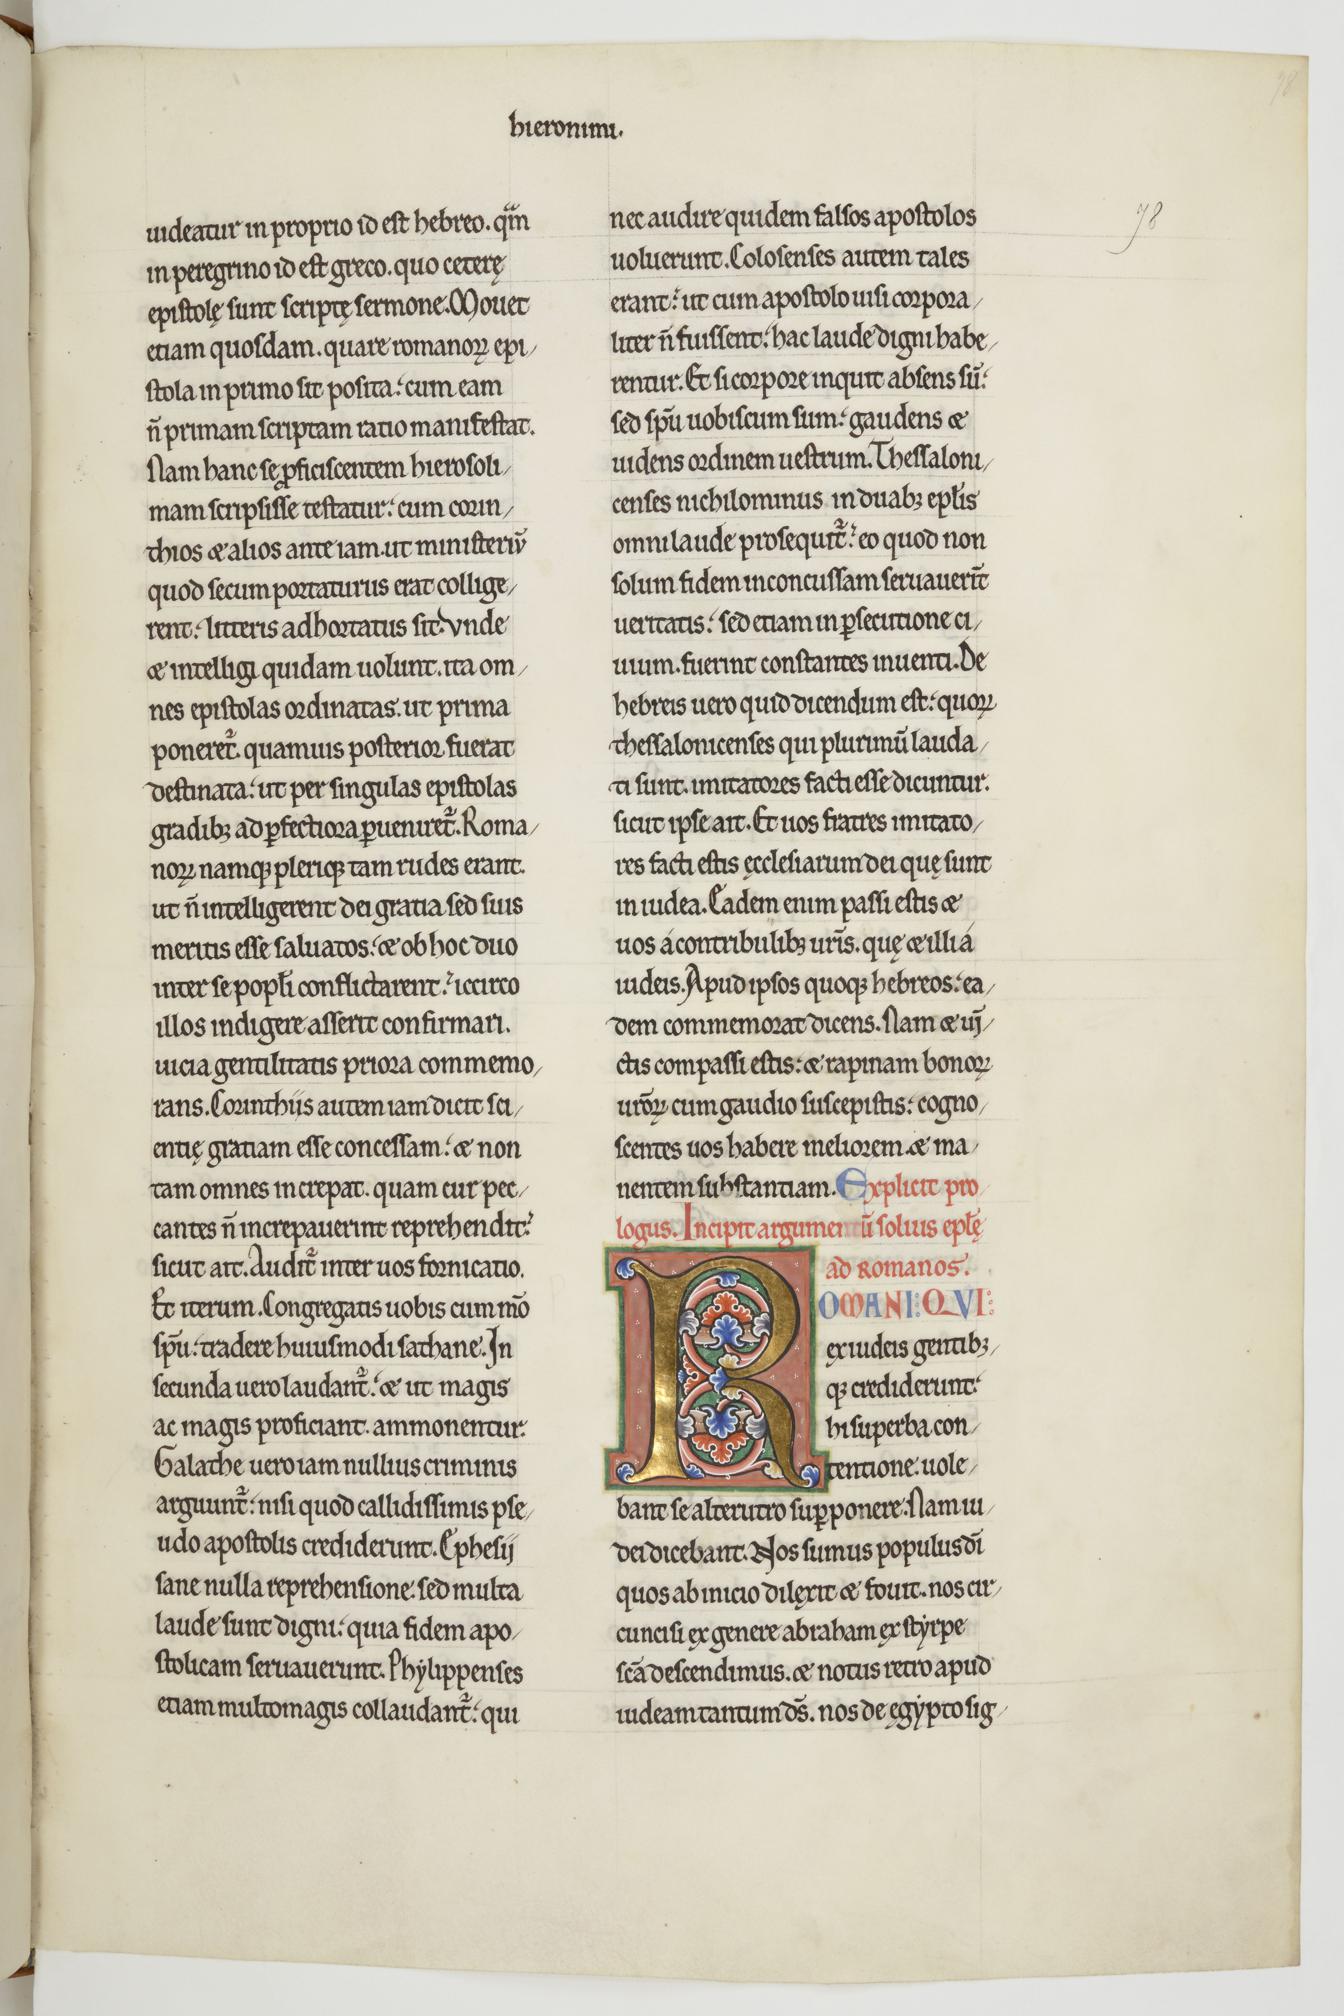 hieronimi.
78
78
uideatur in proprio id est hebreo. qm̃
in peregrino id est greco. quo ceterę
epistolę sunt scriptę sermone. Mouet
etiam quosdam. quare romanoꝝ epi/
stola in primo sit posita: cum eam
ñ primam scriptam ratio manifestat.
Nam hanc se ꝓficiscentem hierosoli/
mam scripsisse testatur: cum corin/
thios & alios ante iam. ut ministeriũ
quod secum portaturus erat collige/
rent: litteris adhortatus sit. Vnde
& intelligi quidam uolunt. ita om/
nes epistolas ordinatas. ut prima
poneret᷑. quamuis posterior fuerat
destinata: ut per singulas epistolas
gradibꝫ ad ꝑfectiora ꝑueniret᷑. Roma/
noꝝ namqꝫ pleriqꝫ tam rudes erant.
ut ñ intelligerent dei gratia sed suis
meritis esse saluatos: & ob hoc duo
inter se popl̃i conflictarent: iccirco
illos indigere asserit confirmari.
uicia gentilitatis priora commemo/
rans. Corinthijs autem iam dicit sci/
entię gratiam esse concessam: & non
tam omnes increpat. quam cur pec/
cantes ñ increpauerint reprehendit:
sicut ait. Audit᷑ inter uos fornicatio.
Et iterum. Congregatis uobis cum mõ
sp̃u: tradere huiusmodi sathane. In
secunda uero laudant᷑: & ut magis
ac magis proficiant. ammonentur.
Galathe uero iam nullius criminis
arguunt᷑: nisi quod callidissimis pse/
udo apostolis crediderunt. Ephesij
sane nulla reprehensione: sed multa
laude sunt digni: quia fidem apo/
stolicam seruauerunt. Phylippenses
etiam multo magis collaudant᷑: qui
nec audire quidem falsos apostolos
uoluerunt. Colosenses autem tales
erant: ut cum apostolo uisi corpora/
liter ñ fuissent: hac laude digni habe/
rentur. Et si corpore inquit absens sũ:
sed sp̃u uobiscum sum: gaudens &
uidens ordinem uestrum. Thessaloni/
censes nichilominus in duabꝫ epl̃is
omni laude prosequit᷑: eo quod non
solum fidem inconcussam seruauerĩt
ueritatis: sed etiam in ꝑsecutione ci/
uium. fuerint constantes inuenti. De
hebreis uero quid dicendum est: quoꝝ
thessalonicenses qui plurimũ lauda/
ti sunt. imitatores facti esse dicuntur.
sicut ipse ait. Et uos fratres imitato/
res facti estis ęcclesiarum dei quę sunt
in iudea. Eadem enim passi estis &
uos á contribulibꝫ ur̃is. quę & illi á
iudeis. Apud ipsos quoqꝫ hebreos: ea/
dem commemorat dicens. Nam & uĩ/
ctis compassi estis: & rapinam bonoꝝ
ur̃oꝝ cum gaudio suscepistis: cogno/
scentes uos habere meliorem & ma/
nentem substantiam. Explicit pro
logus. Incipit argumentũ solius epl̃ę
ad romanos.
ROMANI: QVI:
ex iudeis gentibꝫ/
qꝫ crediderunt:
hi superba con/
tentione. uole/
bant se alterutro supꝑponere. Nam iu/
dei dicebant. Nos sumus populus dĩ
quos ab inicio dilęxit & fouit. nos cir/
cuncisi ex genere abraham ex styrpe
sc̃a descendimus. & notus retro apud
iudeam tantum ds̃. nos de ęgypto lig/